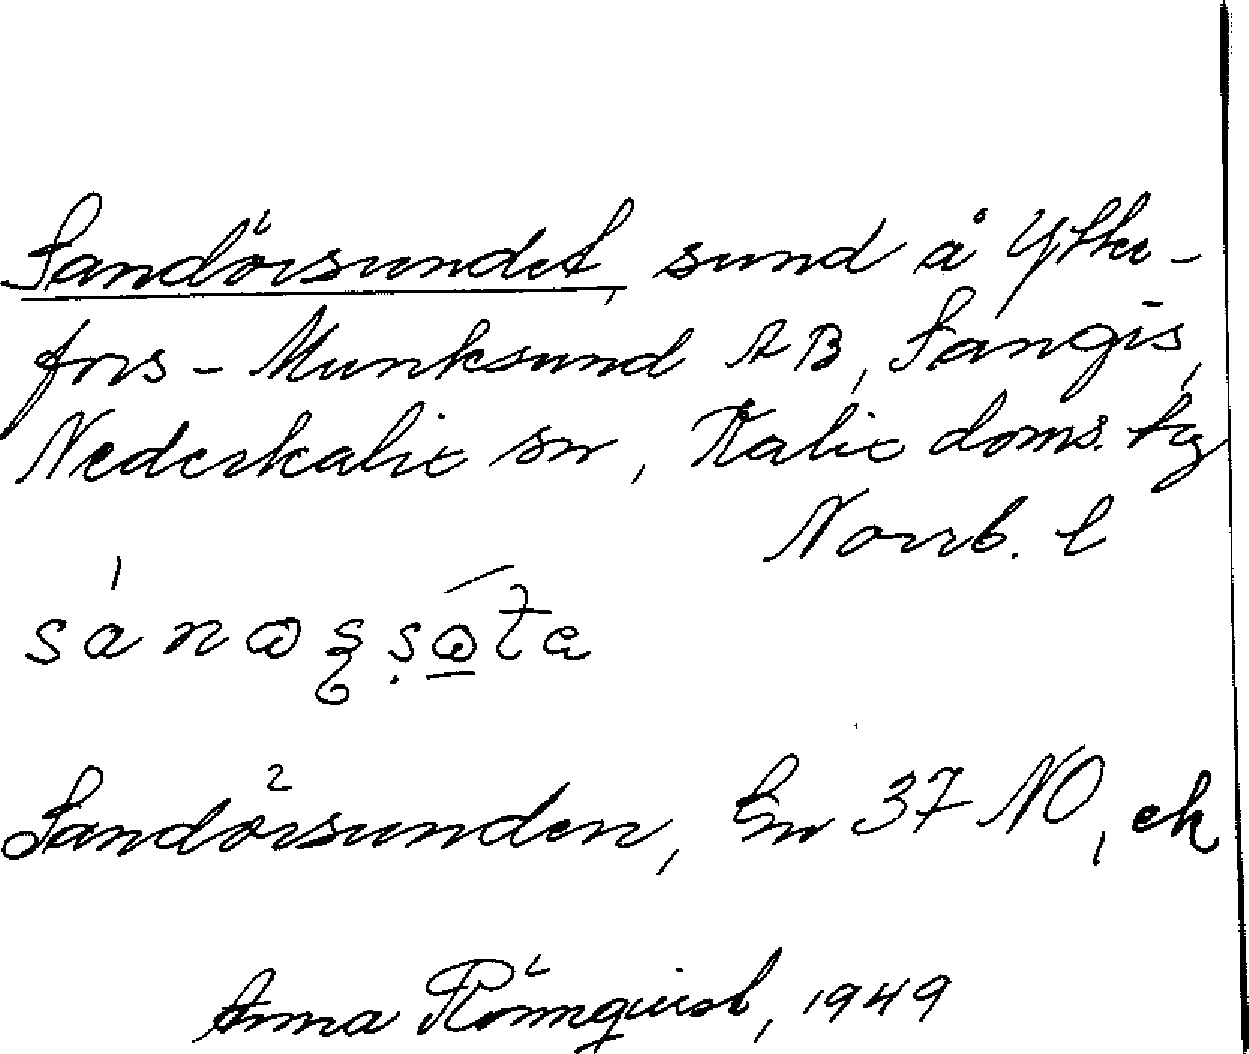 Sandörsundet, sund å Ytter-
fors-Munksund AB, Sangis,
Nederkalix sn, Kalix doms. tg
Norrb. l
Sandörsunden, Gn 37 NO, ek
Anna Rönnquist, 1949